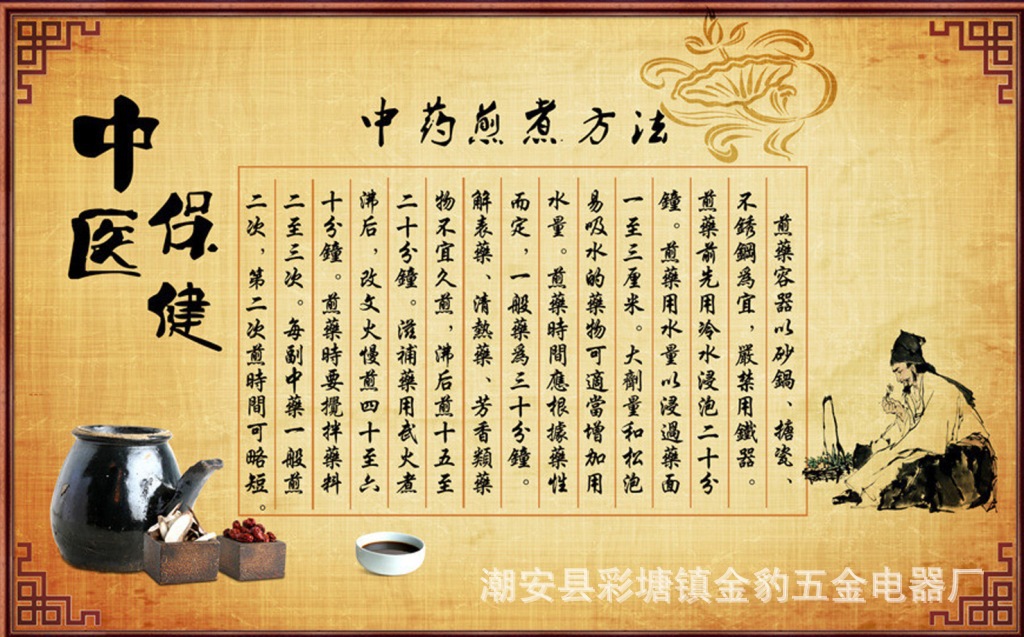 中药煎煮方法
中医
保健
煎藥容器以砂鍋、搪瓷、
不銹鋼為宜，嚴禁用鐵器。
煎藥前先用冷水浸泡二十分
鐘。煎藥用水量以浸過藥面
一至三厘米。大劑量和松泡
易吸水的藥物可適當增加用
水量。煎藥時間應根據藥性
而定，一般藥為三十分鐘。
解表藥、清熱藥、芳香類藥
物不宜久煎，沸后煎十五至
二十分鐘。滋補藥用武火煮
沸后，改文火慢煎四十至六
十分鐘。煎藥時要攪拌藥料
二至三次。每副中藥一般煎
二次，第二次煎時間可略短。
潮安县彩塘镇金豹五金电器厂